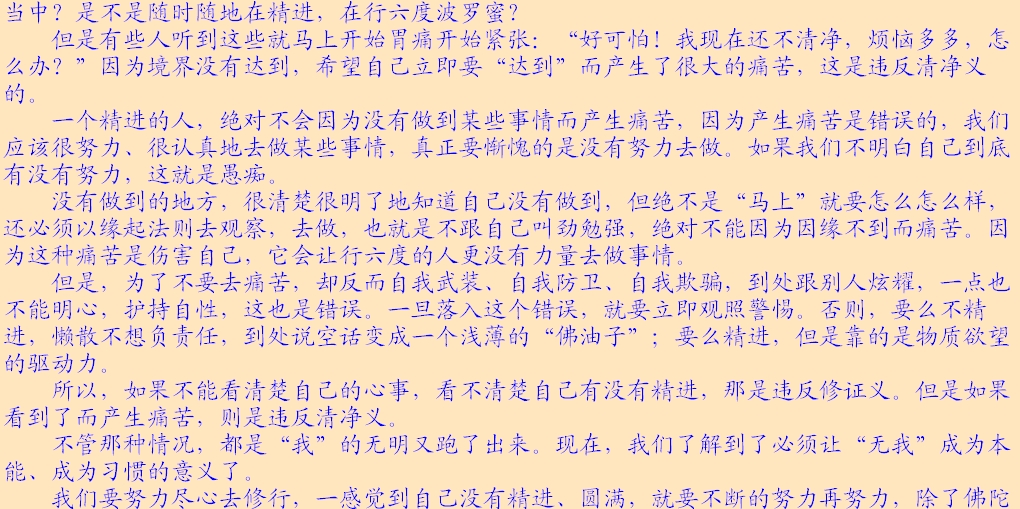 当中？是不是随时随地在精进，在行六度波罗蜜？
但是有些人听到这些就马上开始胃痛开始紧张：“好可怕！我现在还不清净，烦恼多多，怎
么办？”因为境界没有达到，希望自己立即要“达到”而产生了很大的痛苦，这是违反清净义
的。
一个精进的人，绝对不会因为没有做到某些事情而产生痛苦，因为产生痛苦是错误的，我们
应该很努力、很认真地去做某些事情，真正要惭愧的是没有努力去做。如果我们不明白自己到底
有没有努力，这就是愚痴。
没有做到的地方，很清楚很明了地知道自己没有做到，但绝不是“马上”就要怎么怎么样，
还必须以缘起法则去观察，去做，也就是不跟自己叫劲勉强，绝对不能因为因缘不到而痛苦。因
为这种痛苦是伤害自己，它会让行六度的人更没有力量去做事情。
但是，为了不要去痛苦，却反而自我武装、自我防卫、自我欺骗，到处跟别人炫耀，一点也
不能明心，护持自性，这也是错误。一旦落入这个错误，就要立即观照警惕。否则，要么不精
进，懒散不想负责任，到处说空话变成一个浅薄的“佛油子”；要么精进，但是靠的是物质欲望
的驱动力。
所以，如果不能看清楚自己的心事，看不清楚自己有没有精进，那是违反修证义。但是如果
看到了而产生痛苦，则是违反清净义。
不管那种情况，都是“我”的无明又跑了出来。现在，我们了解到了必须让“无我”成为本
能、成为习惯的意义了。
我们要努力尽心去修行，一感觉到自己没有精进、圆满，就要不断的努力再努力，除了佛陀